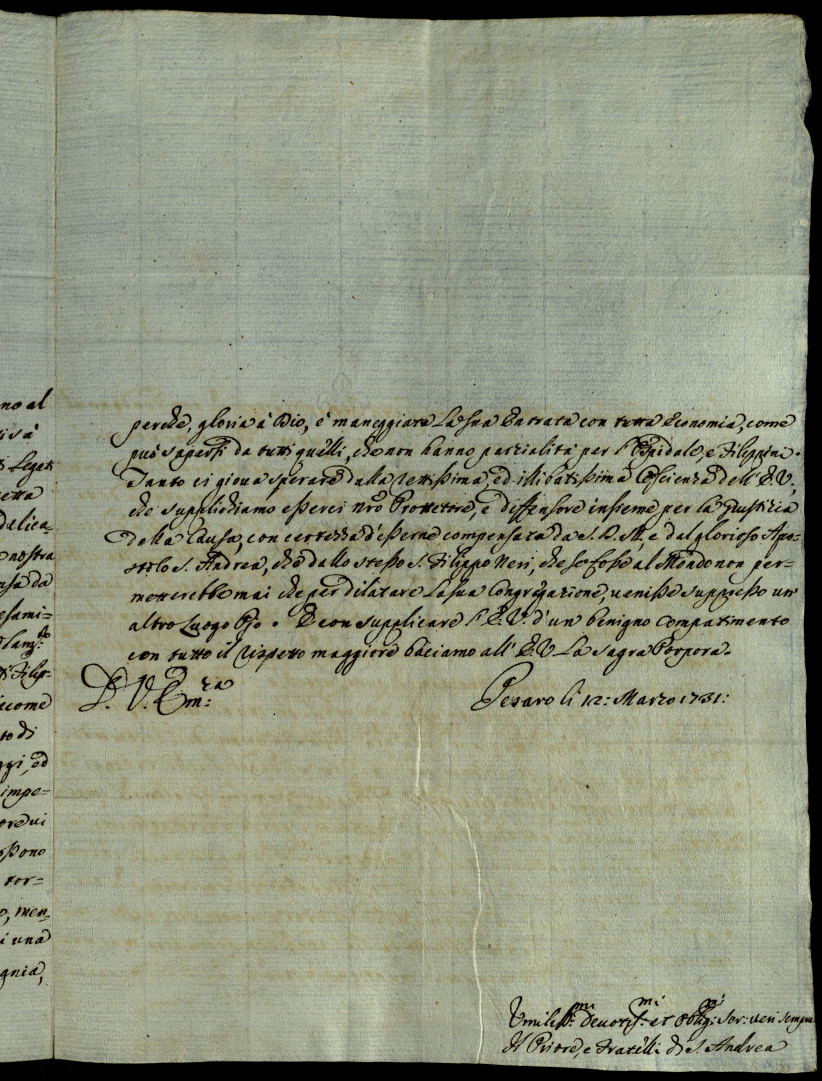 no al
ti Legati
dalica-
nostra
esami-
ti Filip-
to di
ggi, ed
impe-
ssono
tor-
o, men-
i una
gnia,
perche, gloria à Dio, è maneggiata la sua Entrata con tutta Economia, come
può sapersi da tutti quelli, che non hanno parzialità per l'Ospidale, e Filippini.
Tanto ci giova sperare dalla rettissima, ed illibatissima Coscienza dell'E.V.,
che supplichiamo esserci nro Prottettore, e diffensore insieme per la Giustizia
della Causa, con certezza d'esserne compensata da S.D.M., e dal glorioso Apo-
stolo S. Andrea, che dallo stesso S. Filippo Neri, che se fosse al Mondo non per-
metterebbe mai che per dilatare la sua Congregazione, venisse suppresso un'
altro Luogo Pio. E con supplicare l'E.V. d'un benigno Compatimento
con tutto il rispetto maggiore baciamo all'E.V. La Sagra Porpora.
D. V. Em:za Pesaro li 12: Marzo 1731:
Umiliss:mi Devotis:mi et Obblig:mi Ser: veri sempre
Il Priore, e Fratelli di S. Andrea